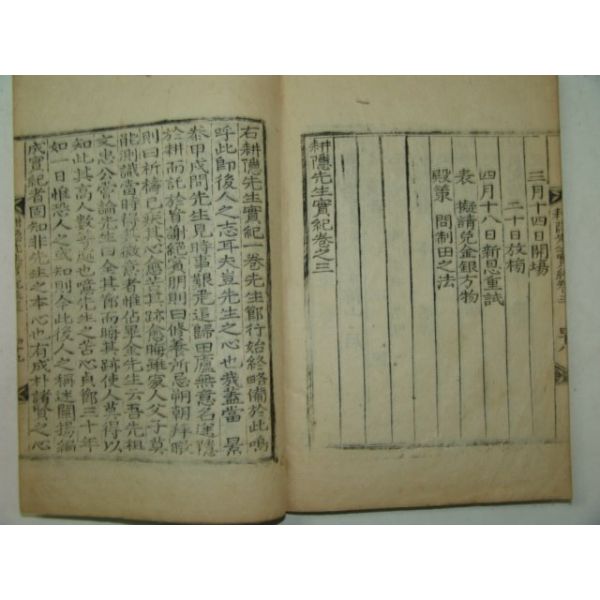 三月十四日開場
二十日放榜
四月十八日新恩重試
表 擬請免金銀方物
殿策 問制田之法
耕隱先生實紀卷之三
右耕隱先生實紀一卷先生節行始終略備於此嗚
呼此節後人之志耳夫豈先生之心也哉盖當 景
泰甲戌間先生見時事艱尾退歸田廬無意名途隱
於耕而託於盲謝絶賓朋則曰修養所忌朔朝拜
則曰祈禱已疾其心愈苦其跡愈晦雖家人父子莫
能測識當時得其微意者惟佔畢金先生云吾先祖
文忠公嘗論先生曰全其節而晦其跡使人莫得以
知此其高人數等也噫先生之苦心貞節三十年
如一日惟恐人之或知則今此後人之稱述闡揚編
成實紀者固知非先生之本心也有成朴諸賢之心